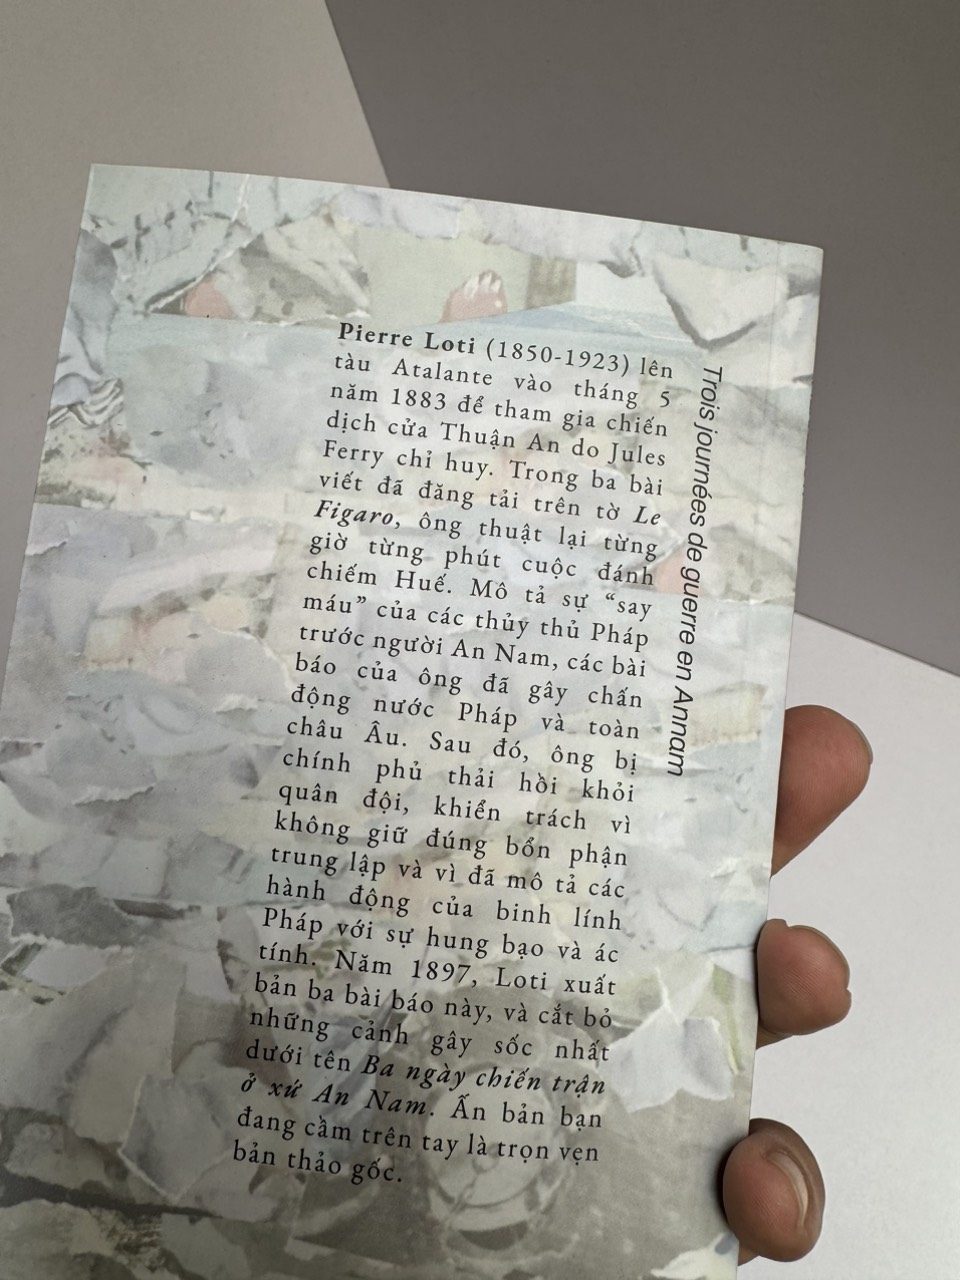 Pierre Loti (1850-1923) lên
tàu Atalante vào tháng 5
năm 1883 để tham gia chiến
dịch cửa Thuận An do Jules
Ferry chỉ huy. Trong ba bài
viết đã đăng tải trên tờ Le
Figaro, ông thuật lại từng
giờ từng phút cuộc đánh
chiếm Huế. Mô tả sự “say
máu” của các thủy thủ Pháp
trước người An Nam, các bài
báo của ông đã gây chấn
động nước Pháp và toàn
châu Âu. Sau đó, ông bị
chính phủ thải hồi khỏi
quân đội, khiển trách vì
không giữ đúng bổn phận
trung lập và vì đã mô tả các
hành động của binh lính
Pháp với sự hung bạo và ác
tính. Năm 1897, Loti xuất
bản ba bài báo này, và cắt bỏ
những cảnh gây sốc nhất
dưới tên Ba ngày chiến trận
ở xứ An Nam. Ấn bản bạn
đang cầm trên tay là trọn vẹn
bản thảo gốc.
Trois journées de guerre en Annam